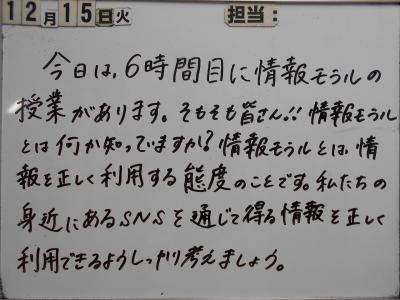 12月15日火 担当:
今日は、6時間目に情報モラルの
授業があります。そもそも皆さん!!情報モラル
とは何か知っていますか?情報モラルとは、情
報を正しく利用する態度のことです。私たちの
身近にあるSNSを通じて得る情報を正しく
利用できるようしっかり考えましょう。